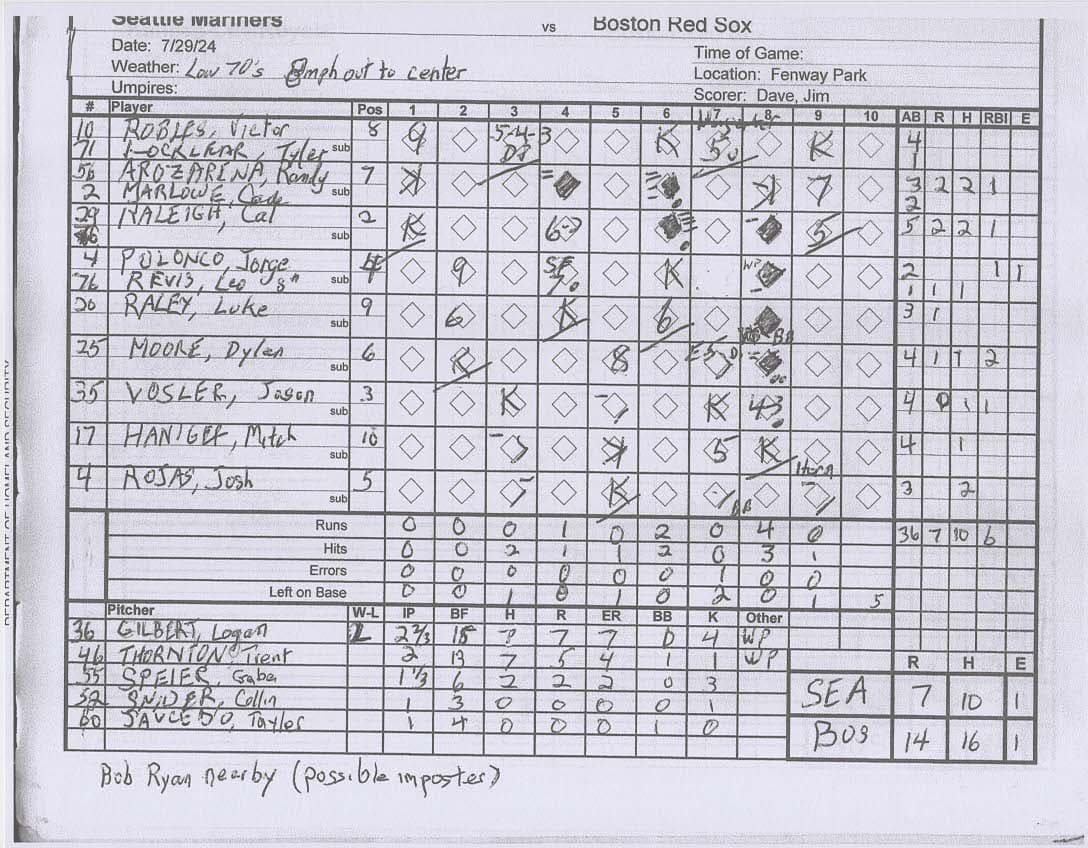 Seattle Mariners vs Boston Red Sox
Date: 7/29/24
Time of Game:
Weather: Low 70's 8mph out to center
Location: Fenway Park
Umpires:
Scorer: Dave, Jim
# Player Pos 1 2 3 4 5 6 7 8 9 10 AB R H RBI E
10 ROBLES, Victor 8 9 5-4-3 DP K K 4
71 LOCKLEAR, Tyler sub 1
56 AROZARENA, Randy 7 K 7 3 2 2 1
2 MARLOWE, Cade sub 2
29 RALEIGH, Cal 2 K 6-3 5 5 2 2 1
sub
4 POLONCO, Jorge 4 9 SF K WP 2 1 1
76 REVIS, Leo sub 1 1 1
20 RALEY, Luke 9 6 K 6 BB 3 1
sub
25 MOORE, Dylan 6 K 8 E5 4 1 1 2
sub
35 VOSLER, Jason 3 K K 43 4 0 1 1
sub
17 HANIGER, Mitch 10 K 5 K 4 1
sub
4 ROJAS, Josh 5 K BB 3 2
sub
Runs 0 0 0 1 0 2 0 4 0 36 7 10 6
Hits 0 0 2 1 1 2 0 3 1
Errors 0 0 0 0 0 0 1 0 0
Left on Base 0 0 1 0 1 0 2 0 1 5
Pitcher W-L IP BF H R ER BB K Other
36 GILBERT, Logan L 2 2/3 18 7 7 7 0 4 WP
46 THORNTON, Trent 2 13 7 5 4 1 1 WP
55 SPEIER, Gabe 1 1/3 6 2 2 2 0 3
52 SNIDER, Collin 1 3 0 0 0 0 1
60 SAUCEDO, Tayler 1 4 0 0 0 1 0
R H E
SEA 7 10 1
BOS 14 16 1
Bob Ryan nearby (possible imposter)
DEPARTMENT OF HOMELAND SECURITY